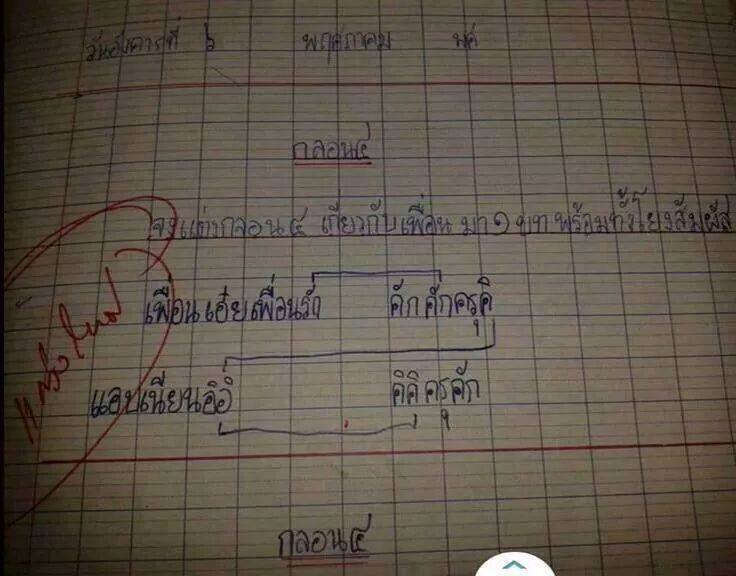 วันอังคารที่ ๖ พฤษภาคม พศ
กลอน๔
จงแต่งกลอน๔ เกี่ยวกับเพื่อน มา๑ บท พร้อมทั้งโยงสัมผัส
เพื่อนเอ๋ยเพื่อนรัก คักคักครุคิ
แอบเนียนอิอิ คิคิครุคัก
แต่งใหม่
กลอน๔